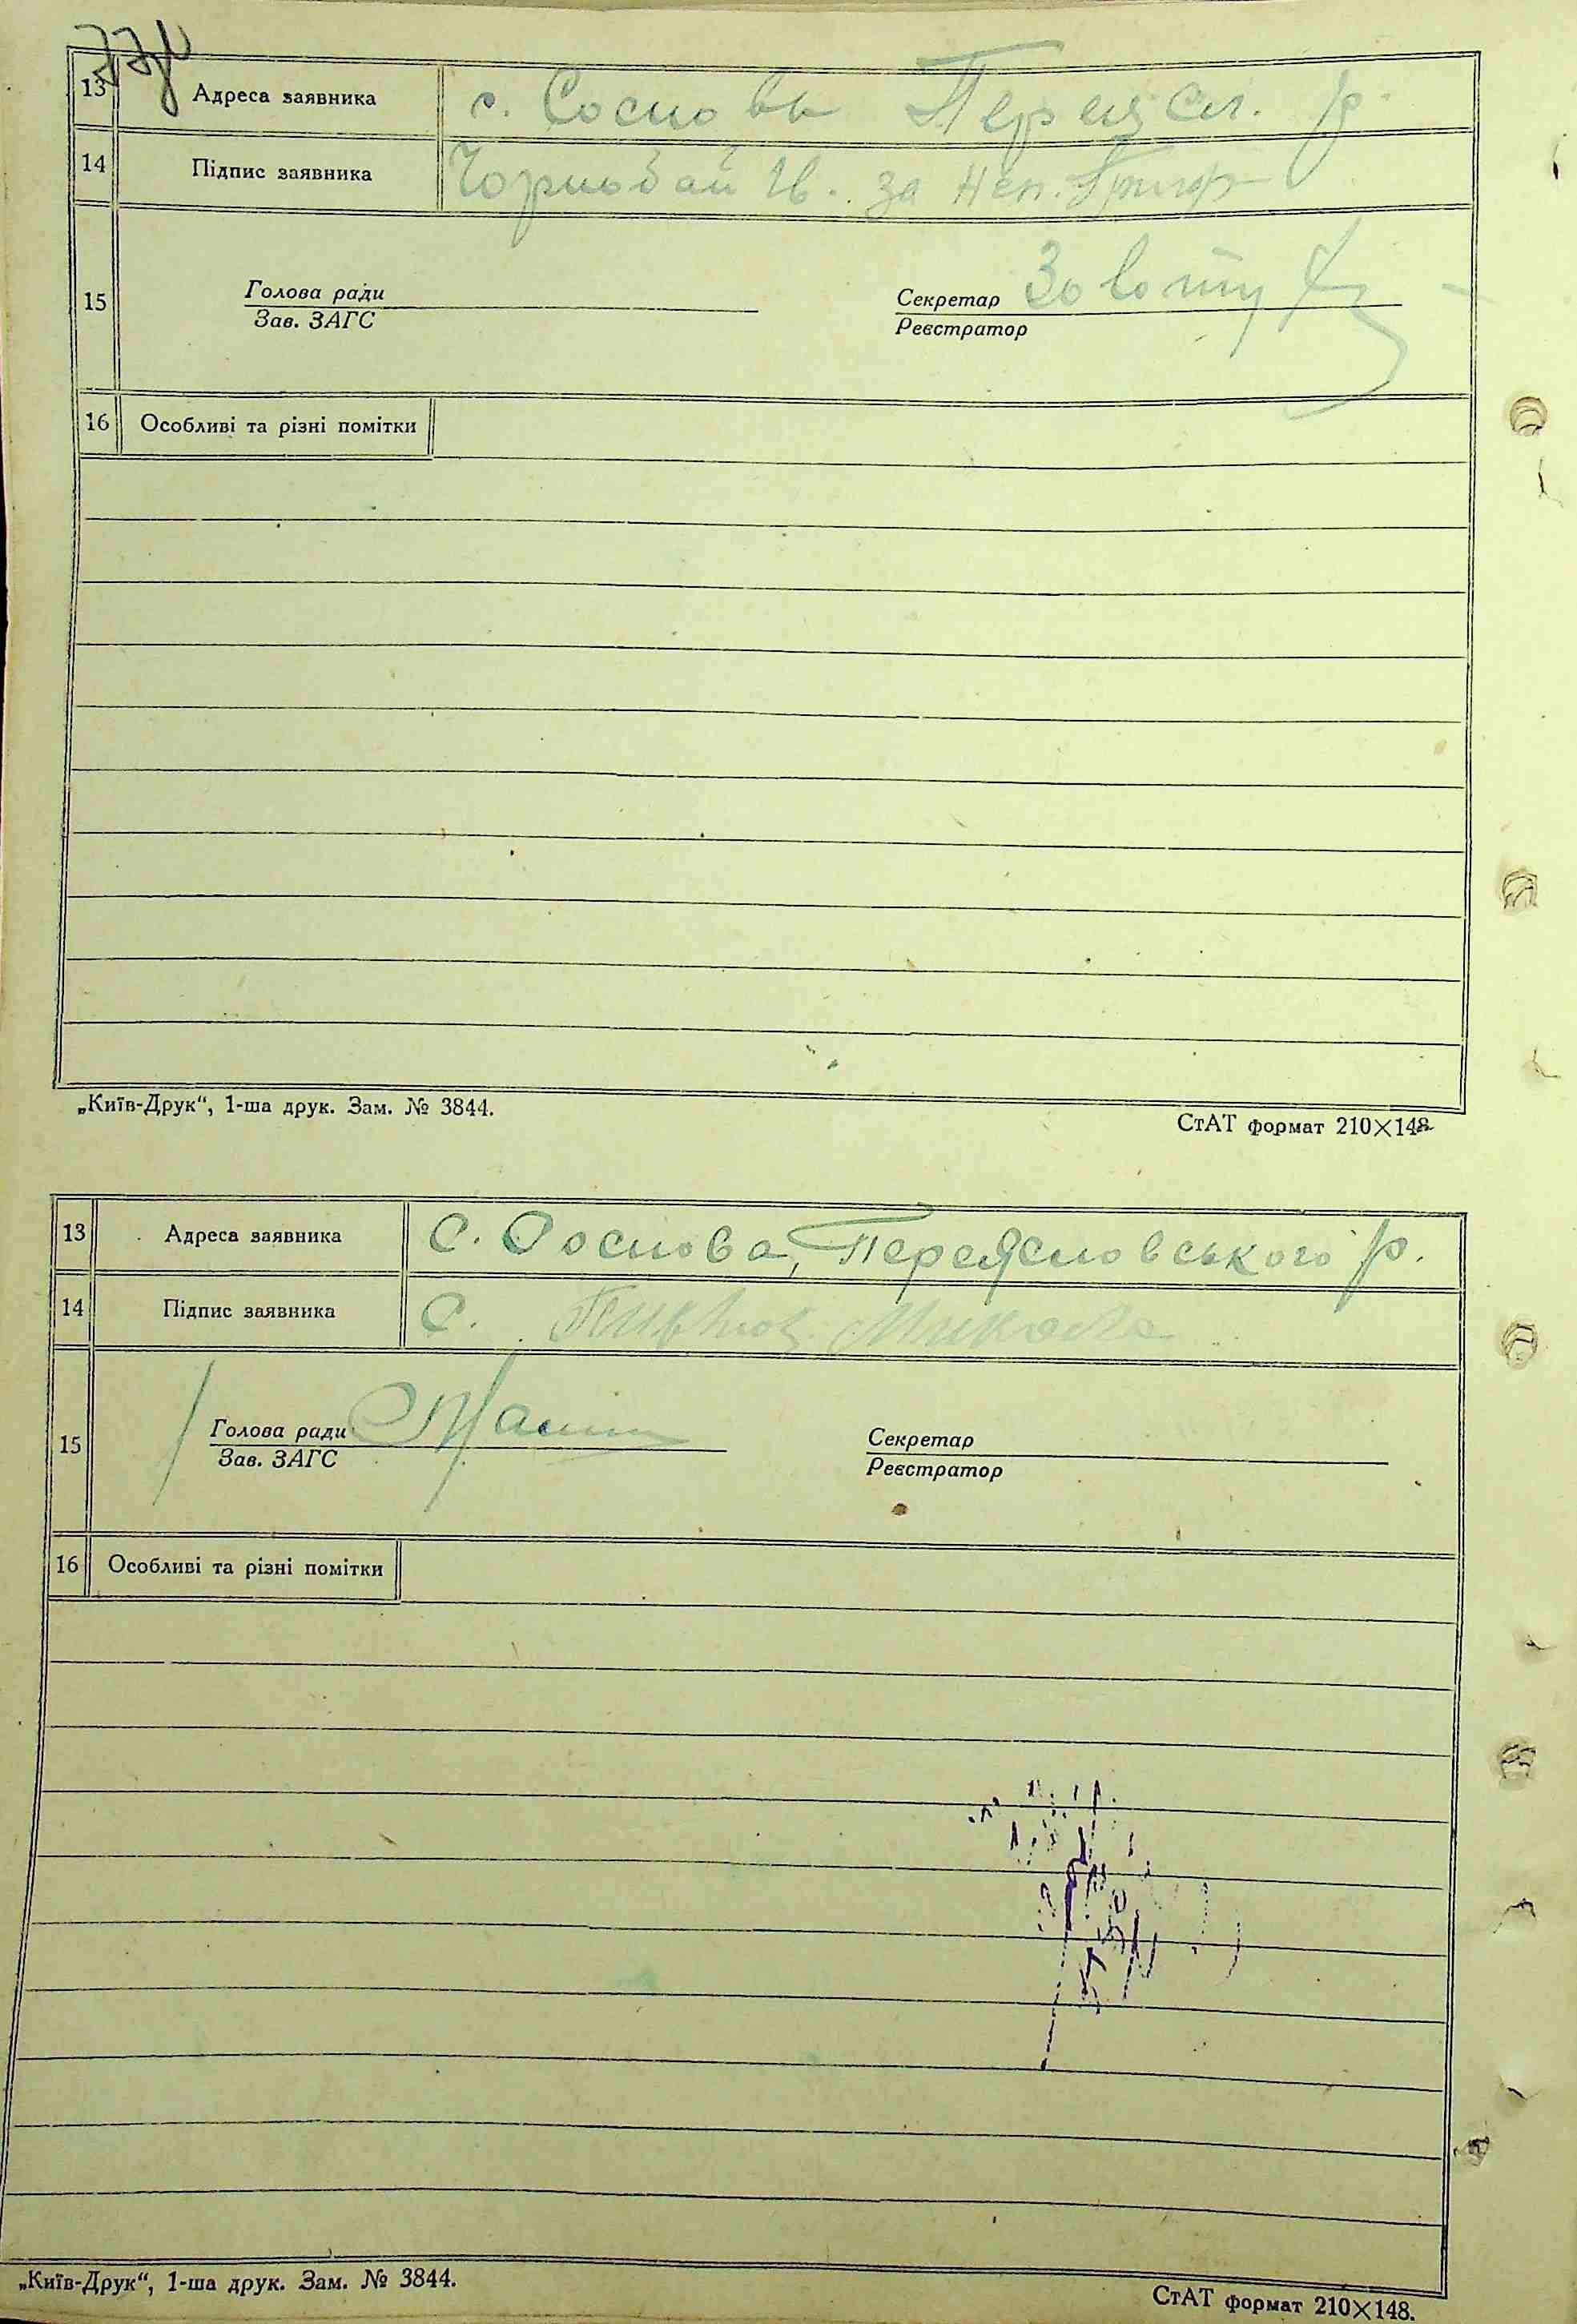 13 Адреса заявника с. Соснова Переясл. р.
14 Підпис заявника Чорнобай Ів. за неп.
15 Голова ради Секретар
Зав. ЗАГС Реєстратор
16 Особливі та різні помітки
„Київ-Друк“, 1-ша друк. Зам. № 3844.
СтАТ формат 210×148
13 Адреса заявника С. Соснова, Переясловського р.
14 Підпис заявника С. Микола
15 Голова ради Секретар
Зав. ЗАГС Реєстратор
16 Особливі та різні помітки
„Київ-Друк“, 1-ша друк. Зам. № 3844.
СтАТ формат 210×148.